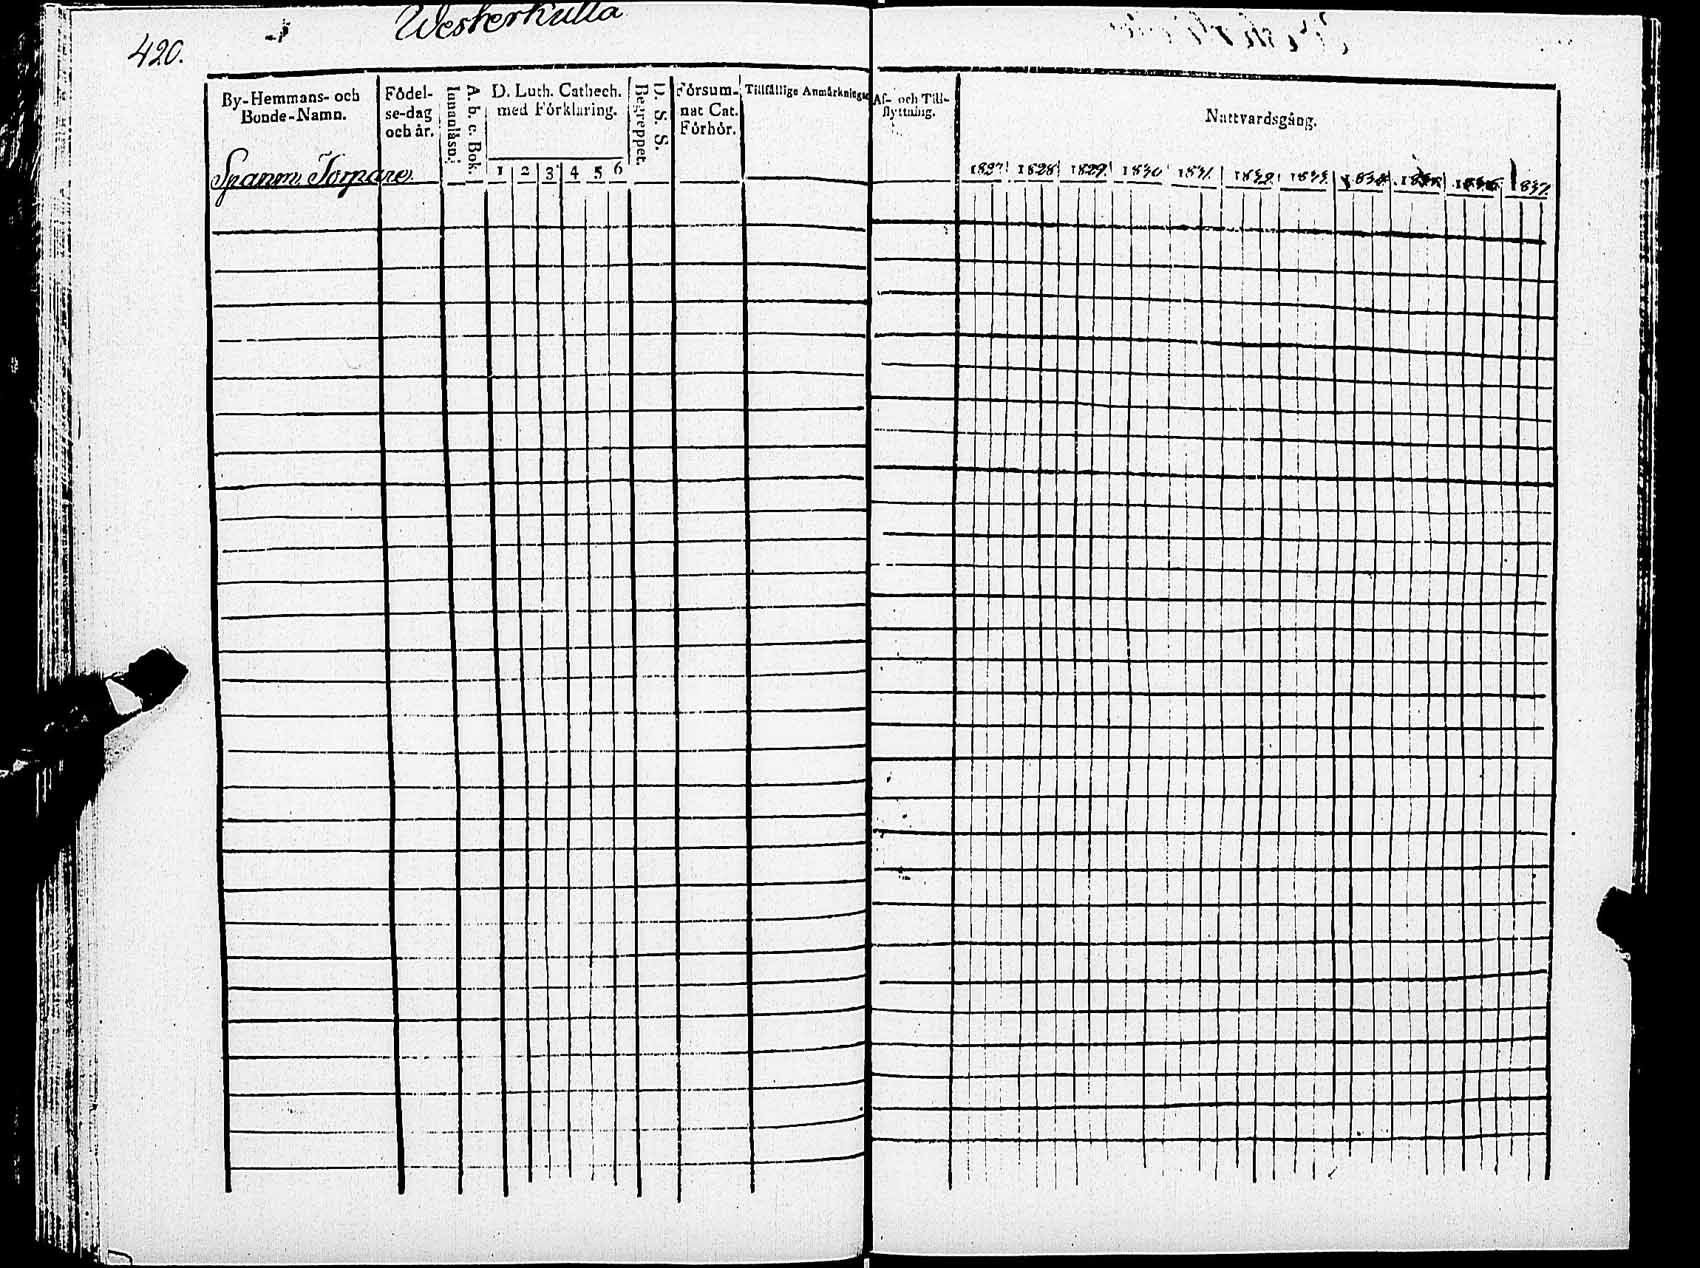 420.
Westerkulla
By-Hemmans- och
Bonde-Namn.
Födel-
se-dag
och år.
Innanläsn.
A. b. c. Bok.
D. Luth. Cathech.
med Förklaring.
1 2 3 4 5 6
D. S. S.
Begreppet.
Försum-
nat Cat.
Förhör.
Tillfällige Anmärkningar
Torpare
Af- och Till-
flyttning.
Nattvardsgång.
1827 1828 1829 1830 1831 1832 1833 1834 1835 1836 1837